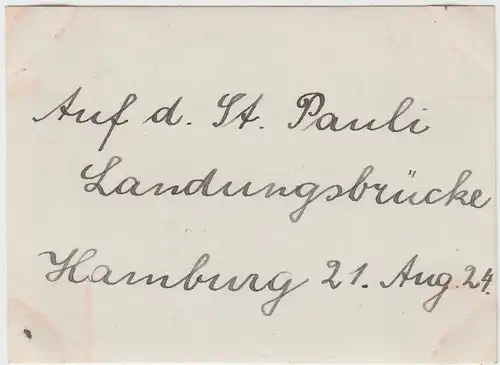 Auf d. St. Pauli
Landungsbrücke
Hamburg 21. Aug. 24.